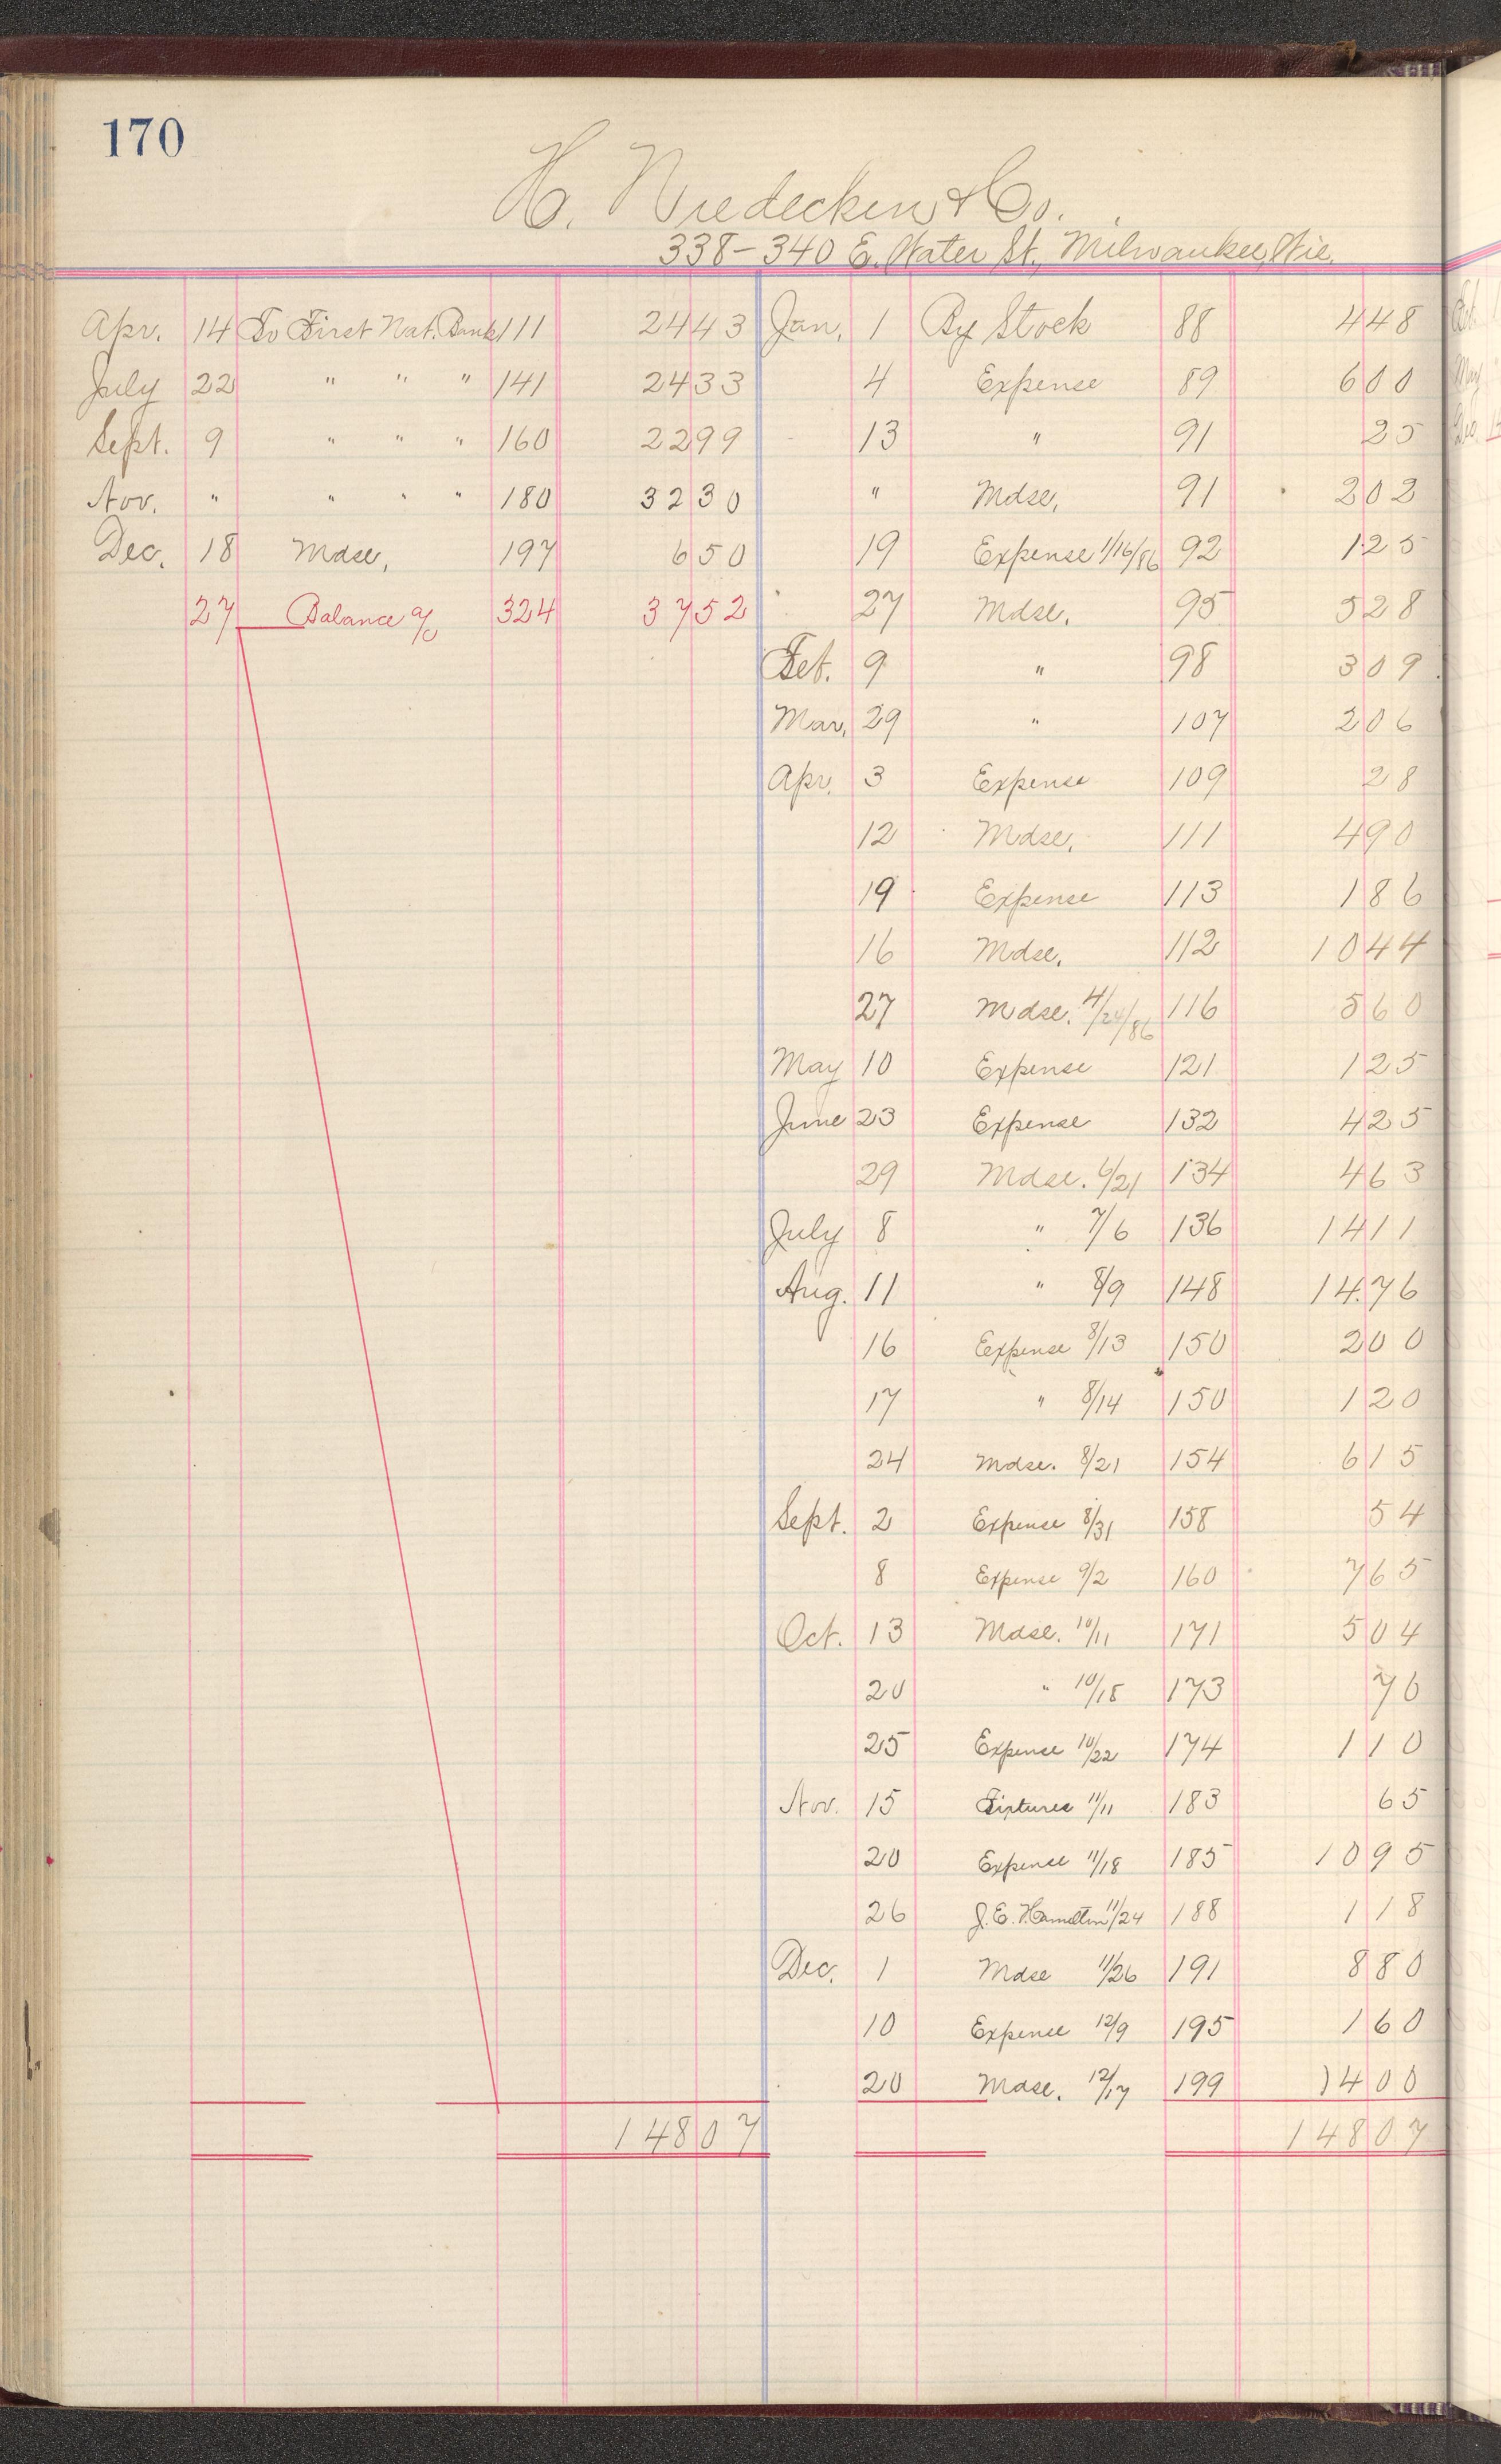 170
H. Niedecken & Co.
338-340 E. Water St., Milwaukee, Wis.
Apr. 14 To First Nat. Bank 111 24 43
July 22 " " " 141 24 33
Sept. 9 " " " 160 22 99
Nov. " " " " 180 32 30
Dec. 18 Mdse, 197 6 50
27 Balance a/c 324 37 52
148 07
Jan. 1 By Stock 88 4 48
4 Expense 89 6 00
13 " 91 25
" Mdse, 91 2 02
19 Expense 1/16/86 92 1 25
27 Mdse. 95 5 28
Feb. 9 " 98 3 09
Mar, 29 " 107 2 06
Apr. 3 Expense 109 28
12 Mdse, 111 4 90
19 Expense 113 1 86
16 Mdse, 112 10 44
27 Mdse. 4/24/86 116 5 60
May 10 Expense 121 1 25
June 23 Expense 132 4 25
29 Mdse. 6/21 134 4 63
July 8 " 7/6 136 14 11
Aug. 11 " 8/9 148 14.76
16 Expense 8/13 150 2 00
17 " 8/14 150 1 20
24 Mdse. 8/21 154 6 15
Sept. 2 Expense 8/31 158 54
8 Expense 9/2 160 7 65
Oct. 13 Mdse. 10/11 171 5 04
20 " 10/18 173 76
25 Expense 10/22 174 1 10
Nov. 15 Fixtures 11/11 183 65
20 Expense 11/18 185 10 95
26 J. E. Hamilton 11/24 188 1 18
Dec. 1 Mdse 11/26 191 8 80
10 Expense 12/9 195 1 60
20 Mdse. 12/17 199 14 00
148 07